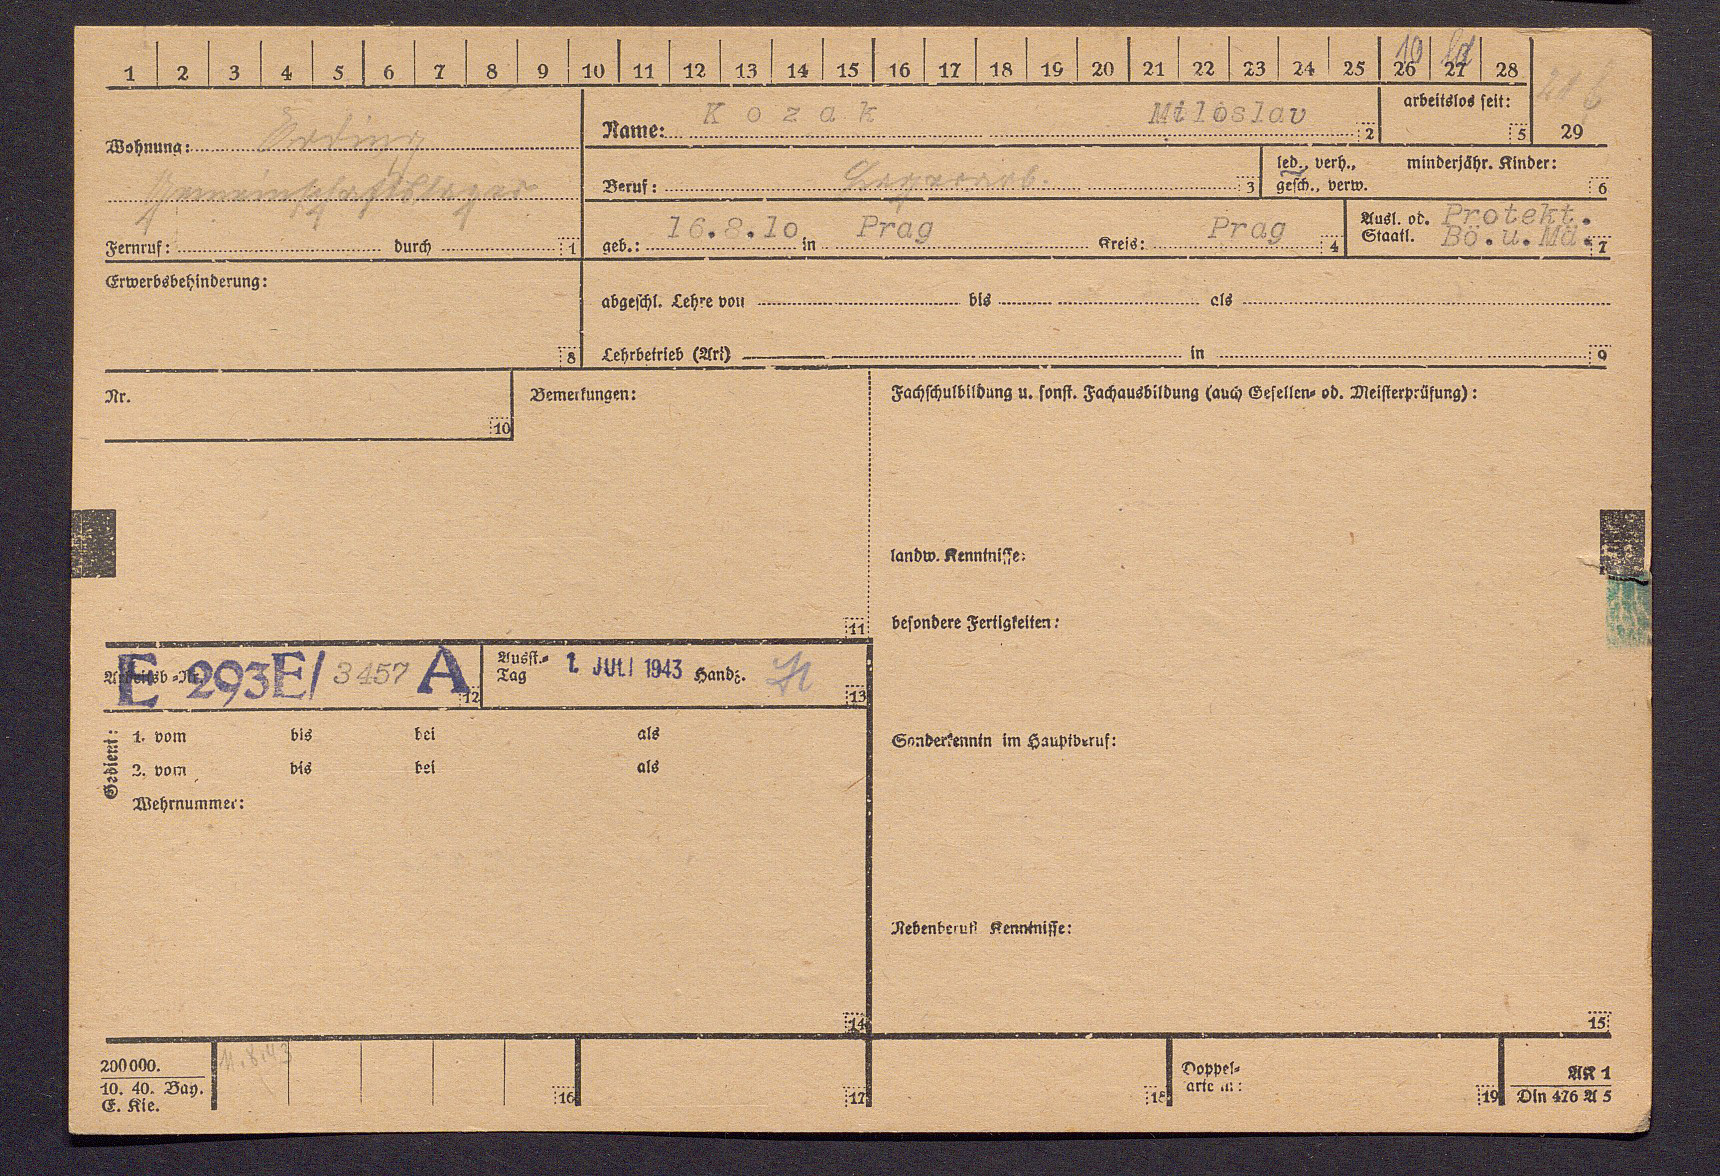 1 2 3 4 5 6 7 8 9 10 11 12 13 14 15 16 17 18 19 20 21 22 23 24 25 26 27 28
10
Wohnung: Erding
Gemeinschaftslager
Fernruf: durch 1
Name: Kozak Miloslav 2
arbeitslos seit: 5
29
Beruf: Lagerarb. 3
led., verh., minderjähr. Kinder:
gesch., verw. 6
geb.: 16.8.10 in Prag Kreis: Prag 4
Ausl. od. Protekt.
Staatl. Bö.u.Mä. 7
Erwerbsbehinderung:
8
abgeschl. Lehre von bis als
Lehrbetrieb (Art) in 9
Nr.
10
Bemerkungen:
11
Fachschulbildung u. sonst. Fachausbildung (auch Gesellen- od. Meisterprüfung):
landw. Kenntnisse:
besondere Fertigkeiten:
Arbeitsb.-Nr. E 293E/3457 A 12
Ausst.-
Tag 1. JULI 1943 Handz. 13
Gedient:
1. vom bis bei als
2. vom bis bei als
Wehrnummer:
14
Sonderkenntn im Hauptberuf:
Nebenberufl Kenntnisse:
15
200000.
10. 40. Bay.
E. Kie.
11.8.43
16
17
18
Doppel-
arte in:
19
AK 1
Din 476 A 5